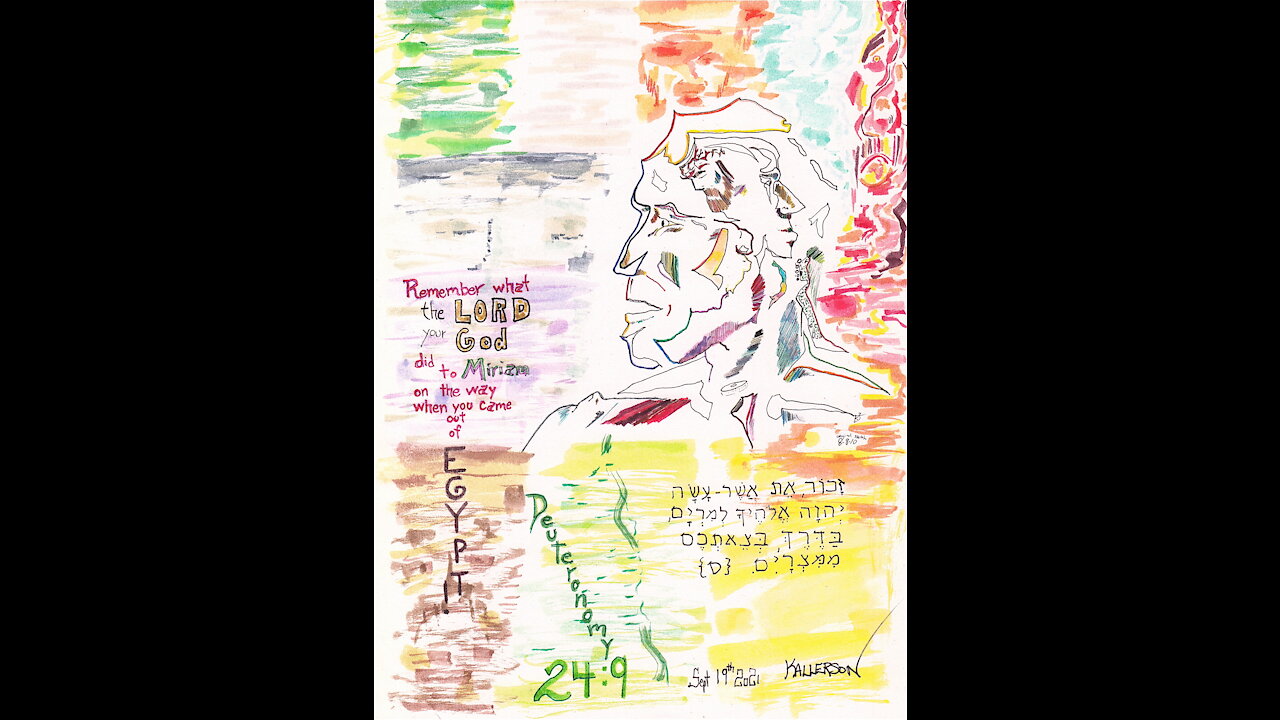 Remember what
the LORD
your God
did to Miriam
on the way
when you came
out
of
EGYPT!
Deuteronomy
24:9
זָכוֹר, אֵת אֲשֶׁר-עָשָׂה
יְהוָה אֱלֹהֶיךָ לְמִרְיָם,
בַּדֶּרֶךְ, בְּצֵאתְכֶם
מִמִּצְרָיִם. {ס}
Sept 19th 2021
KALLERSON
8·8·10